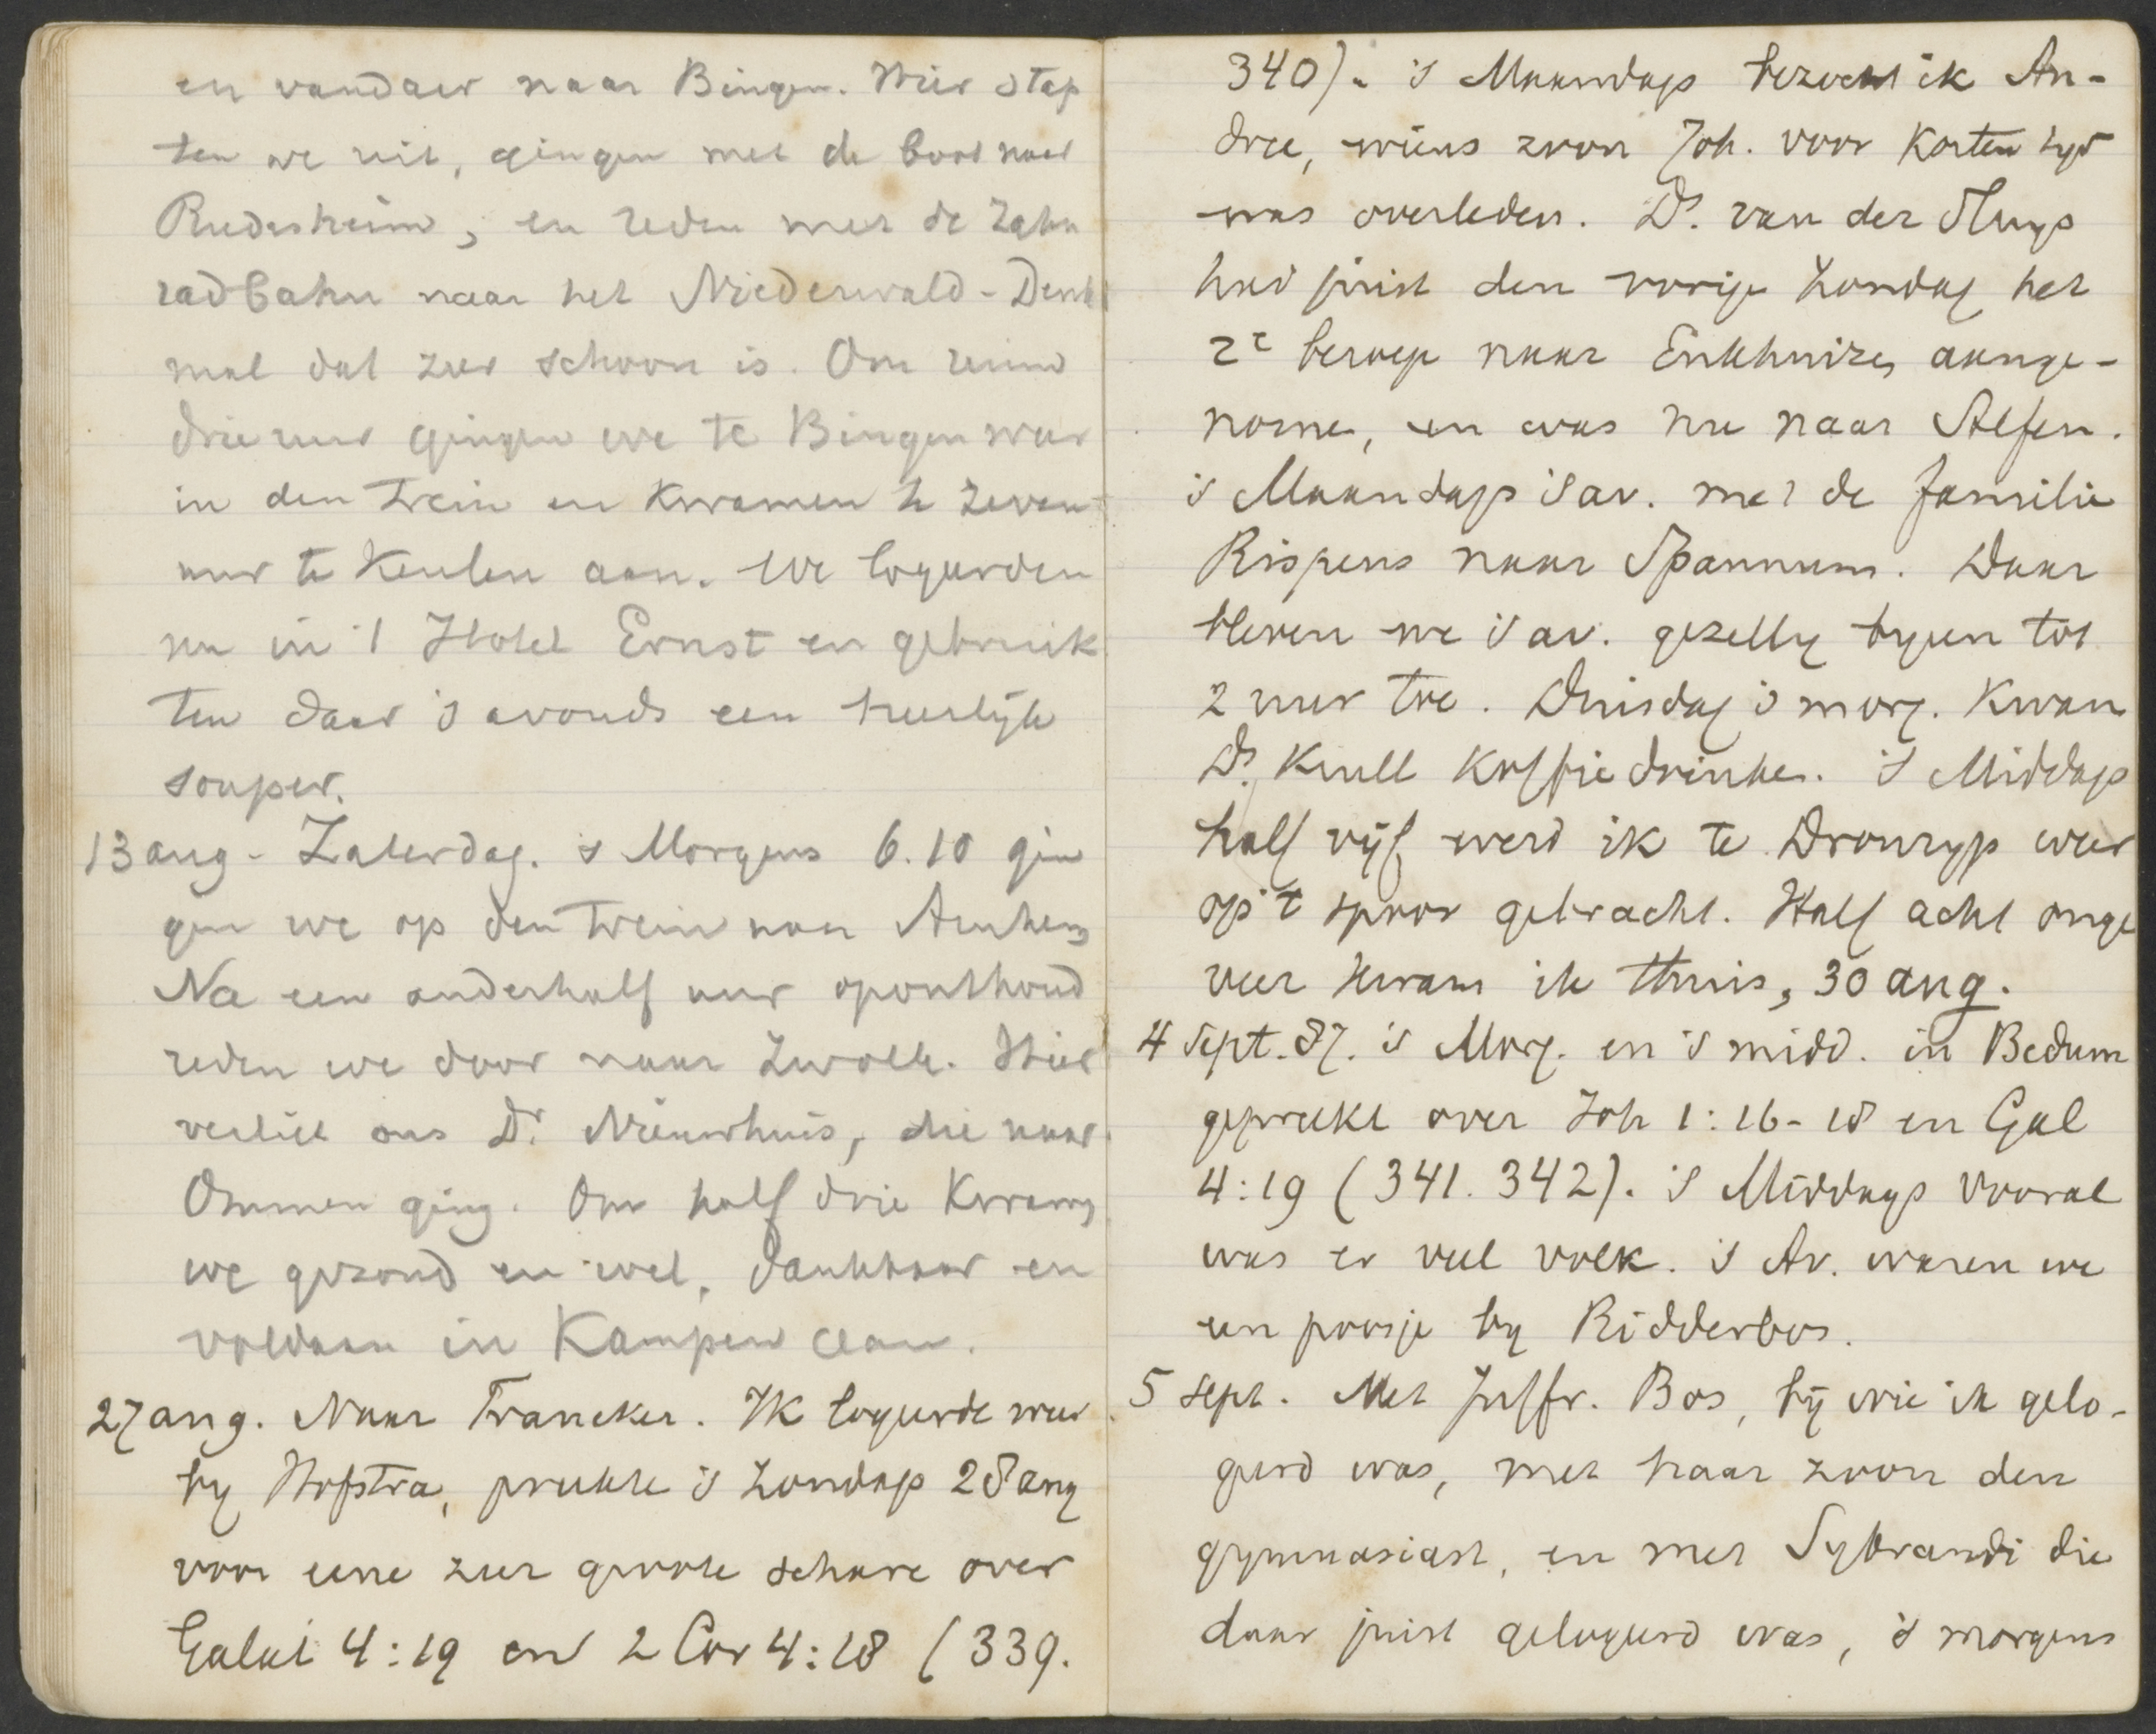 en vandaar naar Bingen. Hier stap
ten we uit, gingen met de boot naar
Rudesheim, en reden met de Zahn
radbahn naar het Niederwald-Denk
mal dat zeer schoon is. Om ruim
drie uur gingen we te Bingen weer
in den trein en kwamen te zeven
uur te Keulen aan. We logeerden
nu in 't Hotel Ernst en gebruik
ten daar 's avonds een heerlijk
souper.
13 aug. Zaterdag. 's Morgens 6.10 gin
gen we op den trein naar Arnhem
Na een anderhalf uur oponthoud
reden we door naar Zwolle. Hier
verliet ons Dr. Nieuwhuis, die naar
Ommen ging. Om half drie kwamen
we gezond en wel, dankbaar en
voldaan in Kampen aan.
27 aug. Naar Franeker. Ik logeerde weer
by Hofstra, preekte 's Zondags 28 aug
voor eene zeer groote schare over
Galat 4:19 en 2 Cor 4:18 (339.
340). 's Maandags bezocht ik An-
dree, wiens zoon Joh. voor korten tyd
was overleden. Ds. van der Sluys
had juist den vorige Zondag het
2e beroep naar Enkhuizen aange-
nomen, en was nu naar Alfen.
's Maandags 's av. met de familie
Rispens naar Spannum. Daar
bleven we 's av. gezellig byeen tot
2 uur toe. Dinsdag 's morg. kwam
Ds. Krull koffie drinken. 's Middags
half vijf werd ik te Dronryp weer
op 't spoor gebracht. Half acht onge
veer kwam ik thuis, 30 aug.
4 Sept. 87. 's Morg. en 's midd. in Bedum
gepreekt over Joh 1:16-18 en Gal
4:19 (341. 342). 's Middags vooral
was er veel volk. 's Av. waren we
een poosje by Ridderbos.
5 Sept. Met Juffr. Bos, bij wie ik gelo-
geerd was, met haar zoon den
gymnasiast, en met Sybrandi die
daar juist gelogeerd was, 's morgens